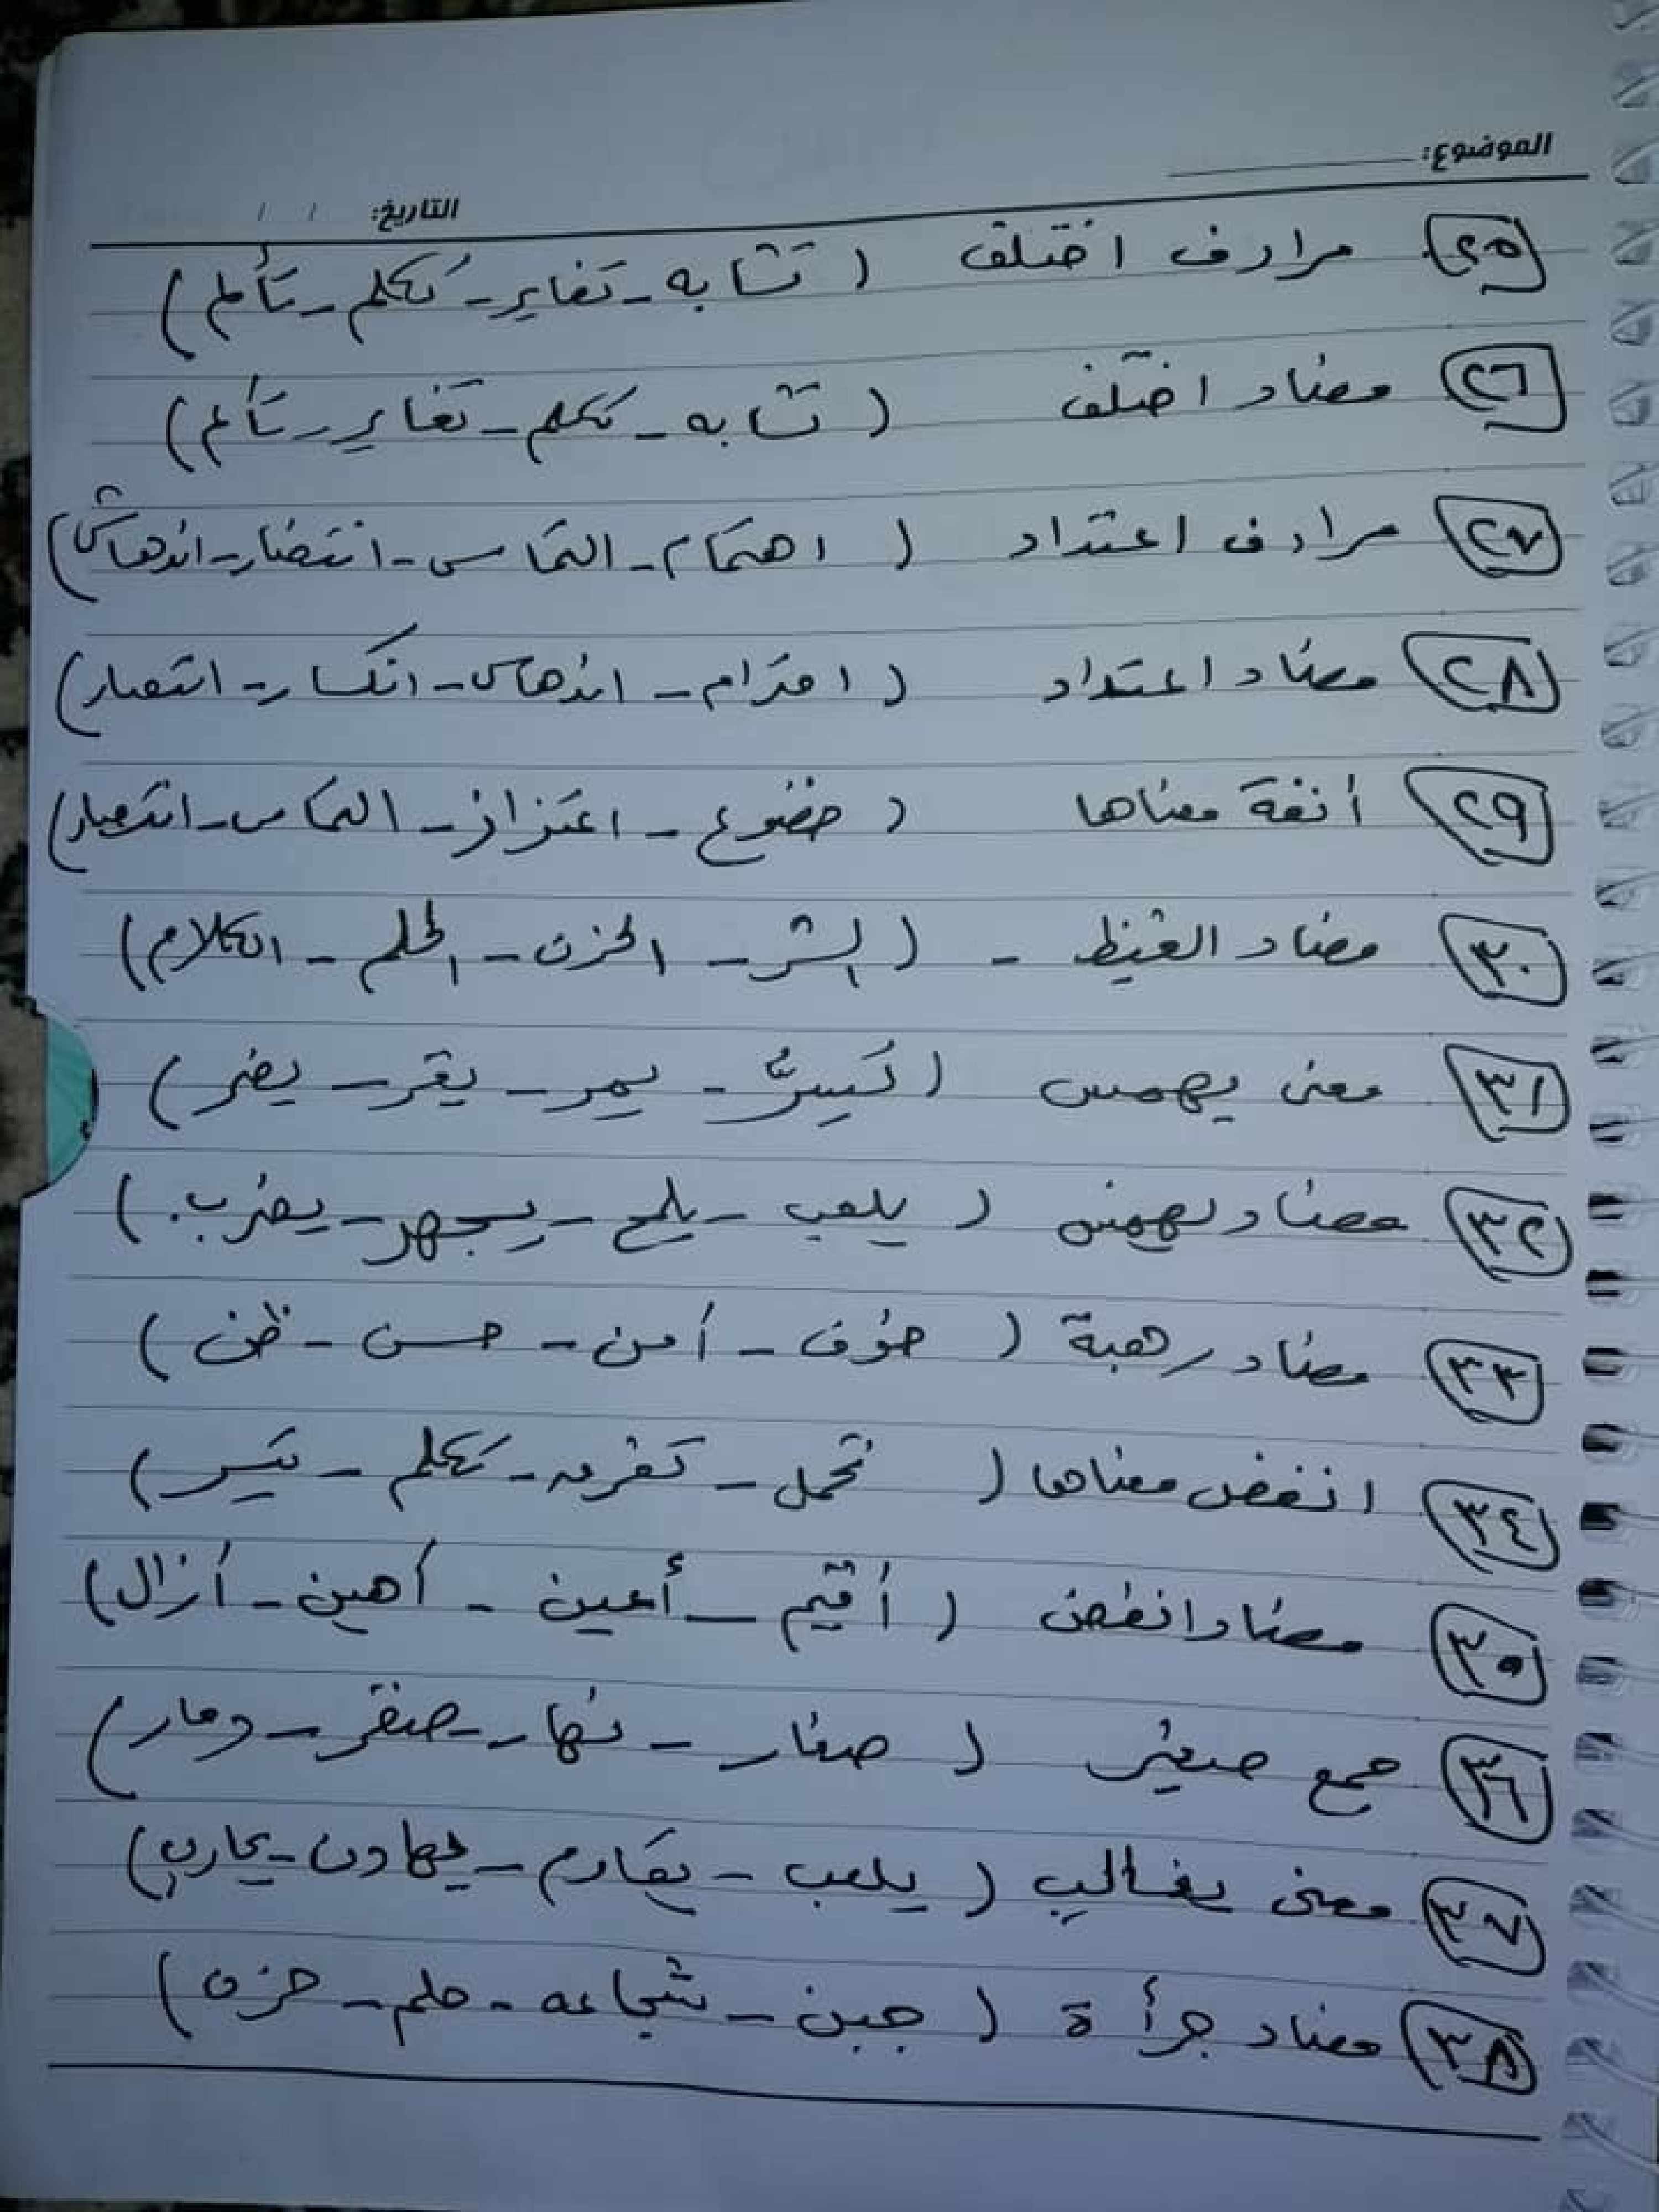 الموضوع:
التاريخ: / /
٢٥ مرادف اختلف ( تشابه - تغاير - تكلم - تألم )
٢٦ مضاد اختلف ( تشابه - تكلم - تغاير - تألم )
٢٧ مرادف اعتداد ( اهتمام - التماس - انتضار - اندهاش )
٢٨ مضاد اعتداد ( احترام - اندهاش - انكسار - انتصار )
٢٩ أنفة معناها ( خضوع - اعتزاز - التماس - انتصار )
٣٠ مضاد الغيظ - ( البشر - الحزن - الحلم - الكلام )
٣١ معنى يهمس ( يُسِرُّ - يمر - يقر - يضر )
٣٢ مضاد يهمس ( يلعب - يلمح - يجهر - يضرب . )
٣٣ مضاد رهبة ( خوف - أمن - حسن - ظن )
٣٤ انفض معناها ( تحمل - تفرق - تكلم - تيسر )
٣٥ مضاد انفض ( أقيم - أعين - أهين - أزال )
٣٦ جمع صغير ( صغار - نهار - صقر - دمار )
٣٧ معنى يغالب ( يلعب - يقاوم - يهادن - يحارب )
٣٨ مضاد جرأة ( جبن - شجاعه - حلم - حزن )